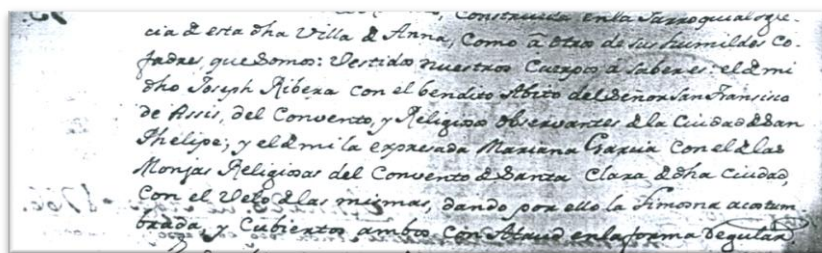 Construida en la Parroquial Igle-
cia de esta dha Villa de Anna, Como â otro de sus humildes Co-
fadres, que Somos: Vestidos nuestros Cuerpos â Saberes: el de mi
dho Joseph Ribera con el bendito Abito del Señor San Fransisco
de Assis, del Convento, y Religiosos Observantes de la Ciudad de San
Phelipe; y el de mi la expresada Mariana Garcia con el de las
Monjas Religiosas del Convento de Santa Clara de dha Ciudad,
con el Velo de las mismas, dando por ello la Limosna acostum
brada, y Cubiertos ambos con Ataud en la forma Regular,